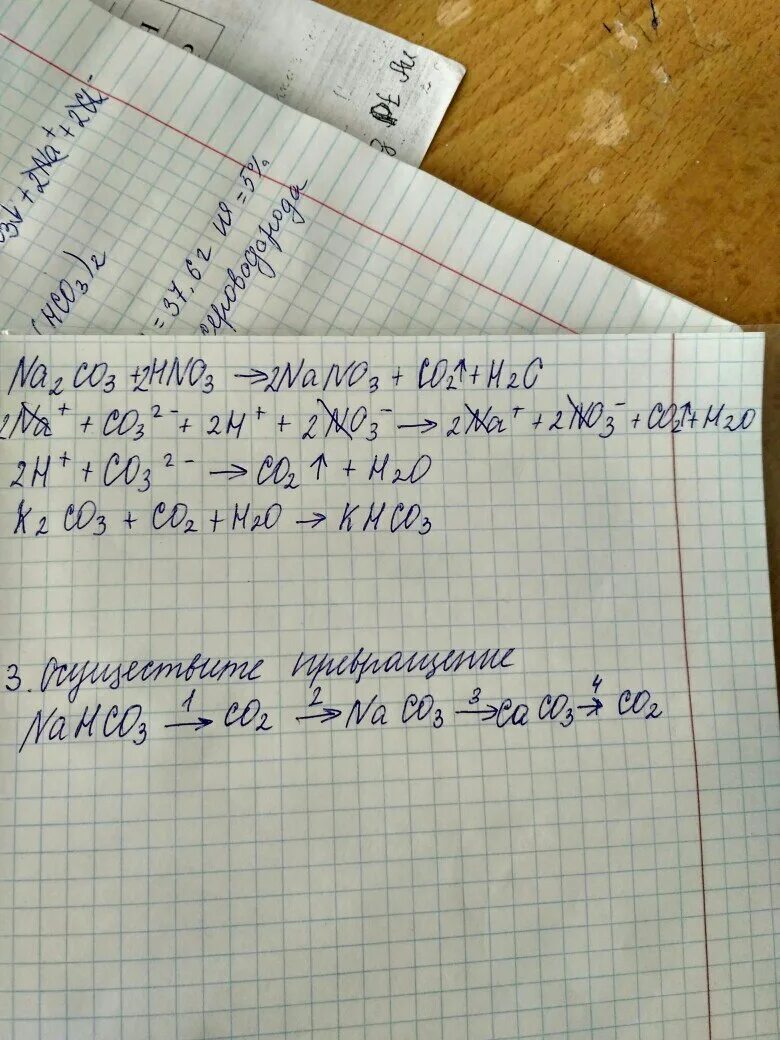 Pt Au
3↓ + 2Na⁺ + 2Cl⁻
HCO3)2
= 37,62 из = 5%
сероводорода
Na2CO3 + 2HNO3 → 2NaNO3 + CO2↑ + H2O
2Na⁺ + CO3²⁻ + 2H⁺ + 2NO3⁻ → 2Na⁺ + 2NO3⁻ + CO2↑ + H2O
2H⁺ + CO3²⁻ → CO2↑ + H2O
K2CO3 + CO2 + H2O → KHCO3
3. Осуществите превращение
NaHCO3 →1 CO2 →2 NaCO3 →3 CaCO3 →4 CO2